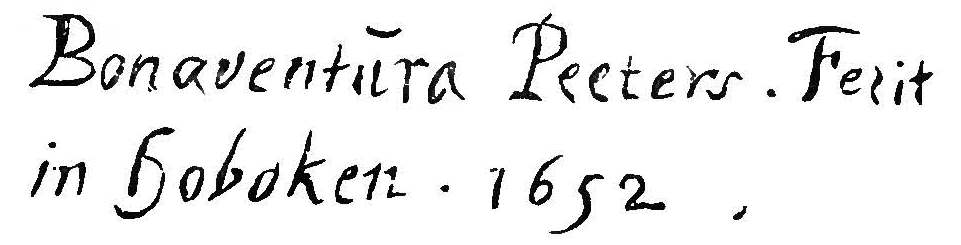 Bonaventŭra Peeters . Fecit
in Hoboken . 1652 .